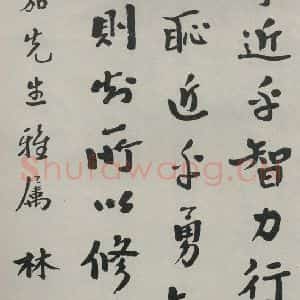 近乎智力行
恥近乎勇
則知所以修
先生雅属 林
Shufawang.Cn